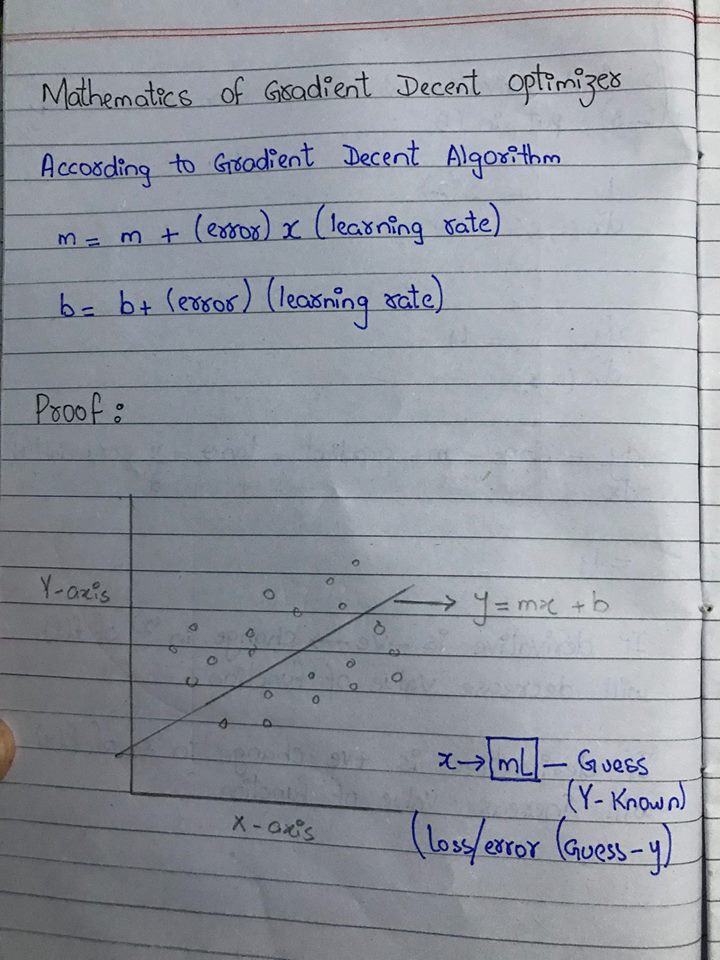 Mathematics of Gradient Decent optimizer
According to Gradient Decent Algorithm
m = m + (error) x (learning rate)
b = b + (error) (learning rate)
Proof :
Y-axis
y = mx + b
x → mL — Guess
(Y-Known)
X-axis
(loss/error (Guess-y)